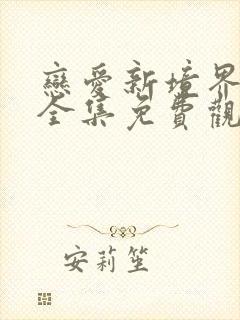 戀愛新境界
全集免費觀
安莉笙